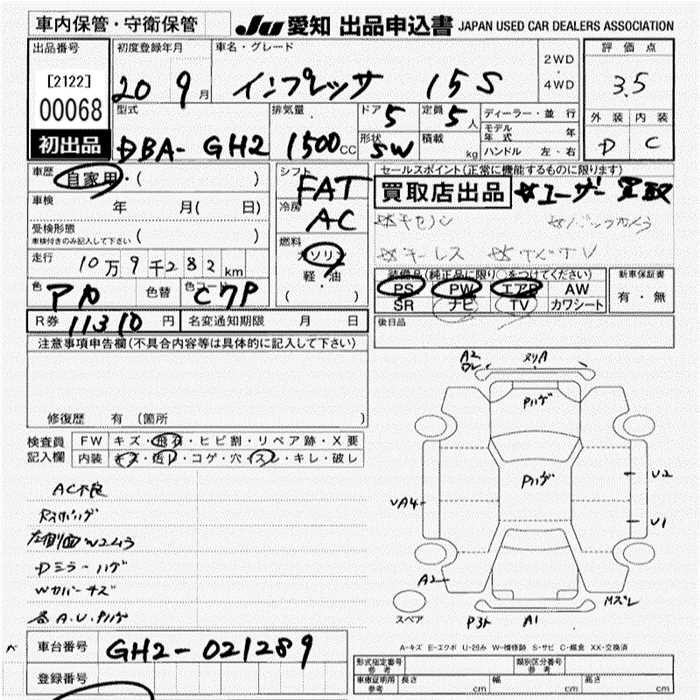 車内保管・守衛保管
JU 愛知 出品申込書 JAPAN USED CAR DEALERS ASSOCIATION
出品番号
[2122]
00068
初出品
初度登録年月
20 9月
車名・グレード
インプレッサ 15S
2WD
・
4WD
評価点
3.5
外装 内装
D C
型式
DBA-GH2
排気量
1500cc
ドア
5
定員
5人
形状
SW
積載
kg
ディーラー・並行
モデル年式 年
ハンドル 左・右
車歴
自家用・( )
車検
年 月( 日)
受検形態
車検付きのみ記入して下さい ( )
走行
10万9千282km
色
色替
色コード
C7P
R券 11310円
名変通知期限 月 日
シフト
FAT
冷房
AC
燃料
ガソリン
軽・油
( )
セールスポイント(正常に機能するものに限ります)
買取店出品 ☆ユーザー買取
☆キーレス
装備品(純正品に限り〇をつけてください)
PS PW エアB AW
SR ナビ TV カワシート
新車保証書
有・無
後日品
注意事項申告欄(不具合内容等は具体的に記入して下さい)
修復歴 有 (箇所 )
検査員
記入欄
FW キズ・飛石・ヒビ割・リペア跡・X要
内装 キズ・汚レ・コゲ・穴・スレ・キレ・破レ
AC不良
左側面W2ム3
Dミラーハゲ
Wカバーキズ
各A.U.
A2
メリA
Pハゲ
Pハゲ
UA4
U2
U1
A2
A1
Mズレ
スペア
A-キズ E-エクボ U-凹み W-補修跡 S-サビ C-腐食 XX-交換済
車台番号 GH2-021289
登録番号
形式指定番号
参考
類別区分番号
参考
車庫証明用
参考
長さ cm
幅 cm
高さ cm